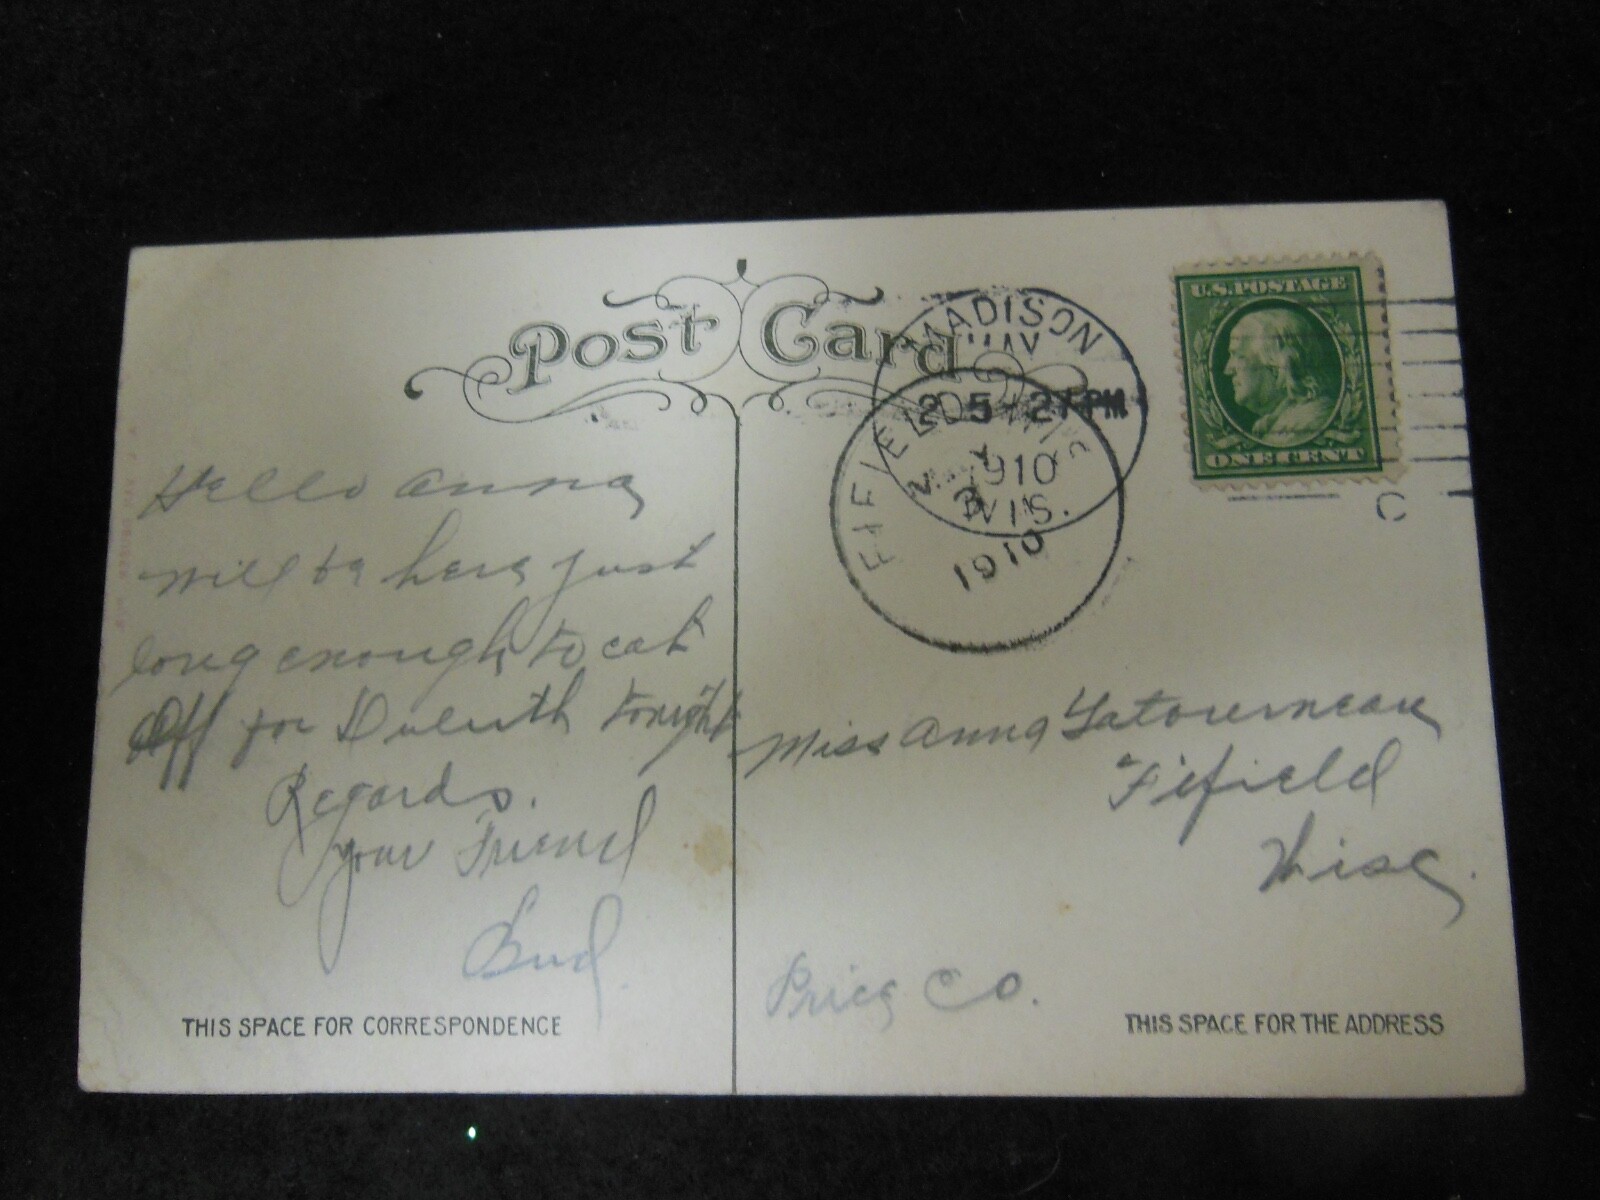 Post Card
U.S. POSTAGE
ONE CENT
MADISON
MAY
2 5-27 PM
1910
WIS.
FIFIELD
1910
C
Hello Anna
will be here just
long enough to eat
Off for Duluth tonight
Regards.
your Friend
Bud
Miss Anna Latourneau
Fifield
Wisc.
Price Co.
THIS SPACE FOR CORRESPONDENCE
THIS SPACE FOR THE ADDRESS